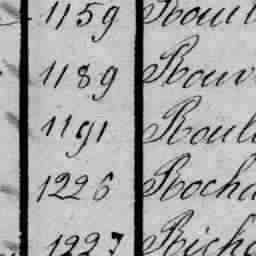 1159 Roul
1189 Rouv
1191 Roul
1226 Rocha
1227 Richa